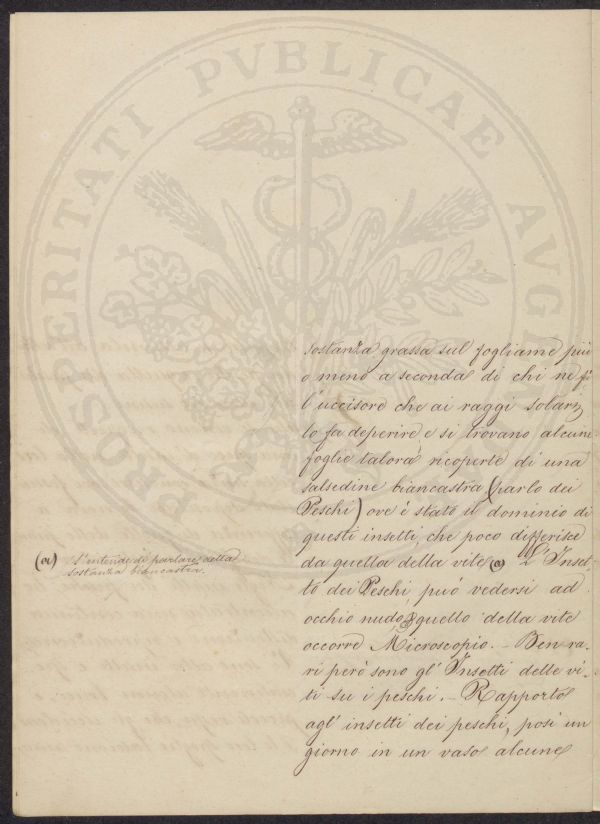 PROSPERITATI PVBLICAE AVGENDAE
sostanza grassa sul fogliame più
o meno a seconda di chi ne fu
l'uccisore che ai raggi solari
lo fa deperire e si trovano alcune
foglie talora ricoperte di una
salsedine biancastra (parlo dei
Peschi) ove è stato il dominio di
questi insetti, che poco differisce
da quella della vite (a) L'Inset-
to dei Peschi, può vedersi ad
occhio nudo, quello della vite
occorre Microscopio. – Ben ra-
ri però sono gl' Insetti delle vi-
ti su i peschi. – Rapporto
agl' insetti dei peschi, posi un
giorno in un vaso alcune
(a) S'intende di parlare della
sostanza biancastra.